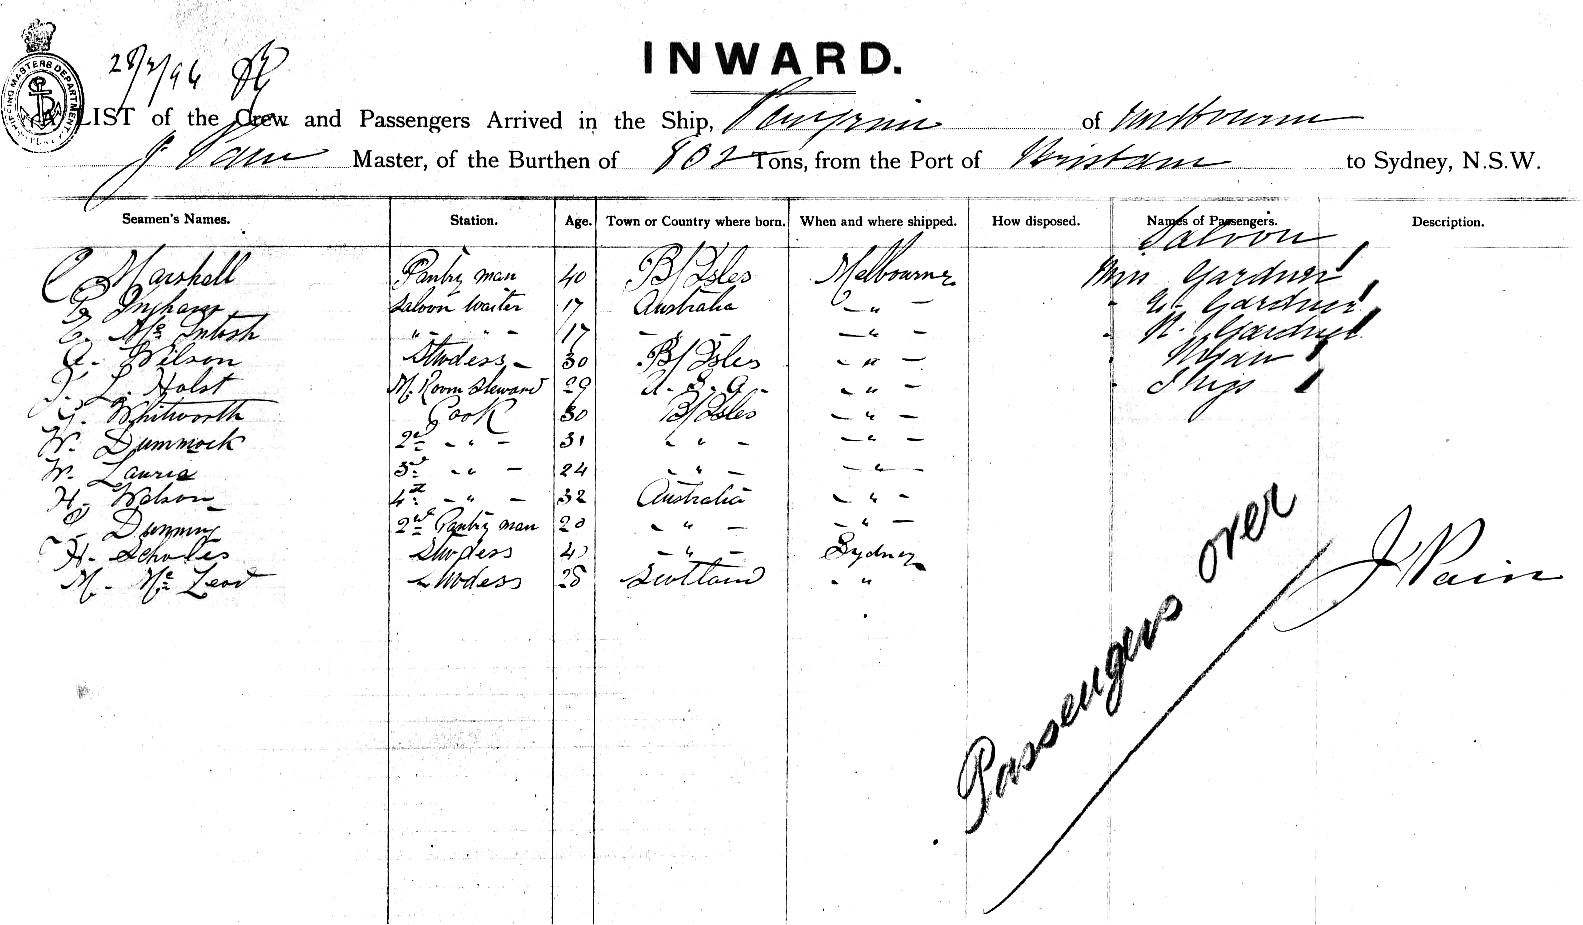 SHIPPING MASTERS DEPARTMENT
28/2/96
INWARD.
A LIST of the Crew and Passengers Arrived in the Ship, Peregrine of Melbourne
J Pain Master, of the Burthen of 802 Tons, from the Port of Brisbane to Sydney, N.S.W.
Seamen's Names. Station. Age. Town or Country where born. When and where shipped. How disposed. Names of Passengers. Description.
Saloon
C Marshall Pantry man 40 B/Isles Melbourne Miss Gardner
Ingham Saloon Waiter 17 Australia " " Gardner
Mc Intosh " " 17 " " " Gardner
A. Wilson Stwdess 30 B/Isles "
L. Holst M. Room Steward 29 U.S.A. "
Whitworth Cook 30 B/Isles "
W. Dummock 2nd " 31 " "
W. Laurie 3rd " 24 " "
H. Watson 4th " 32 Australia "
Dunning 2nd Pantry man 20 " "
H. Scholes Stwdess 40 " Sydney
M. Mc Leod Stwdess 28 Scotland "
Passengers over
J Pain